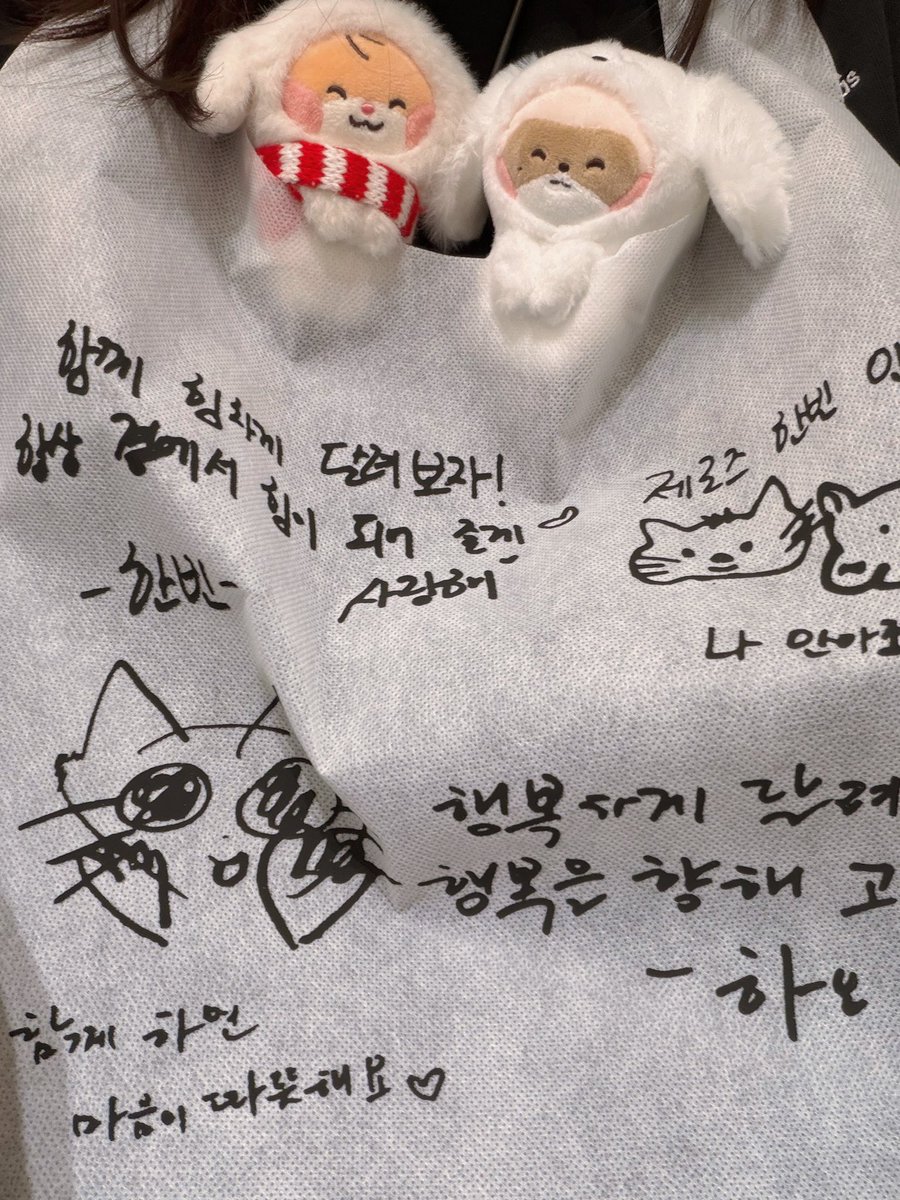 함께 힘차게 달려보자!
항상 곁에서 힘이 되어 줄게
사랑해
-한빈-
제로즈 한빈
나 안아
행복하게 달려
행복은 향해
- 하오
함께 하면
마음이 따뜻해요♡